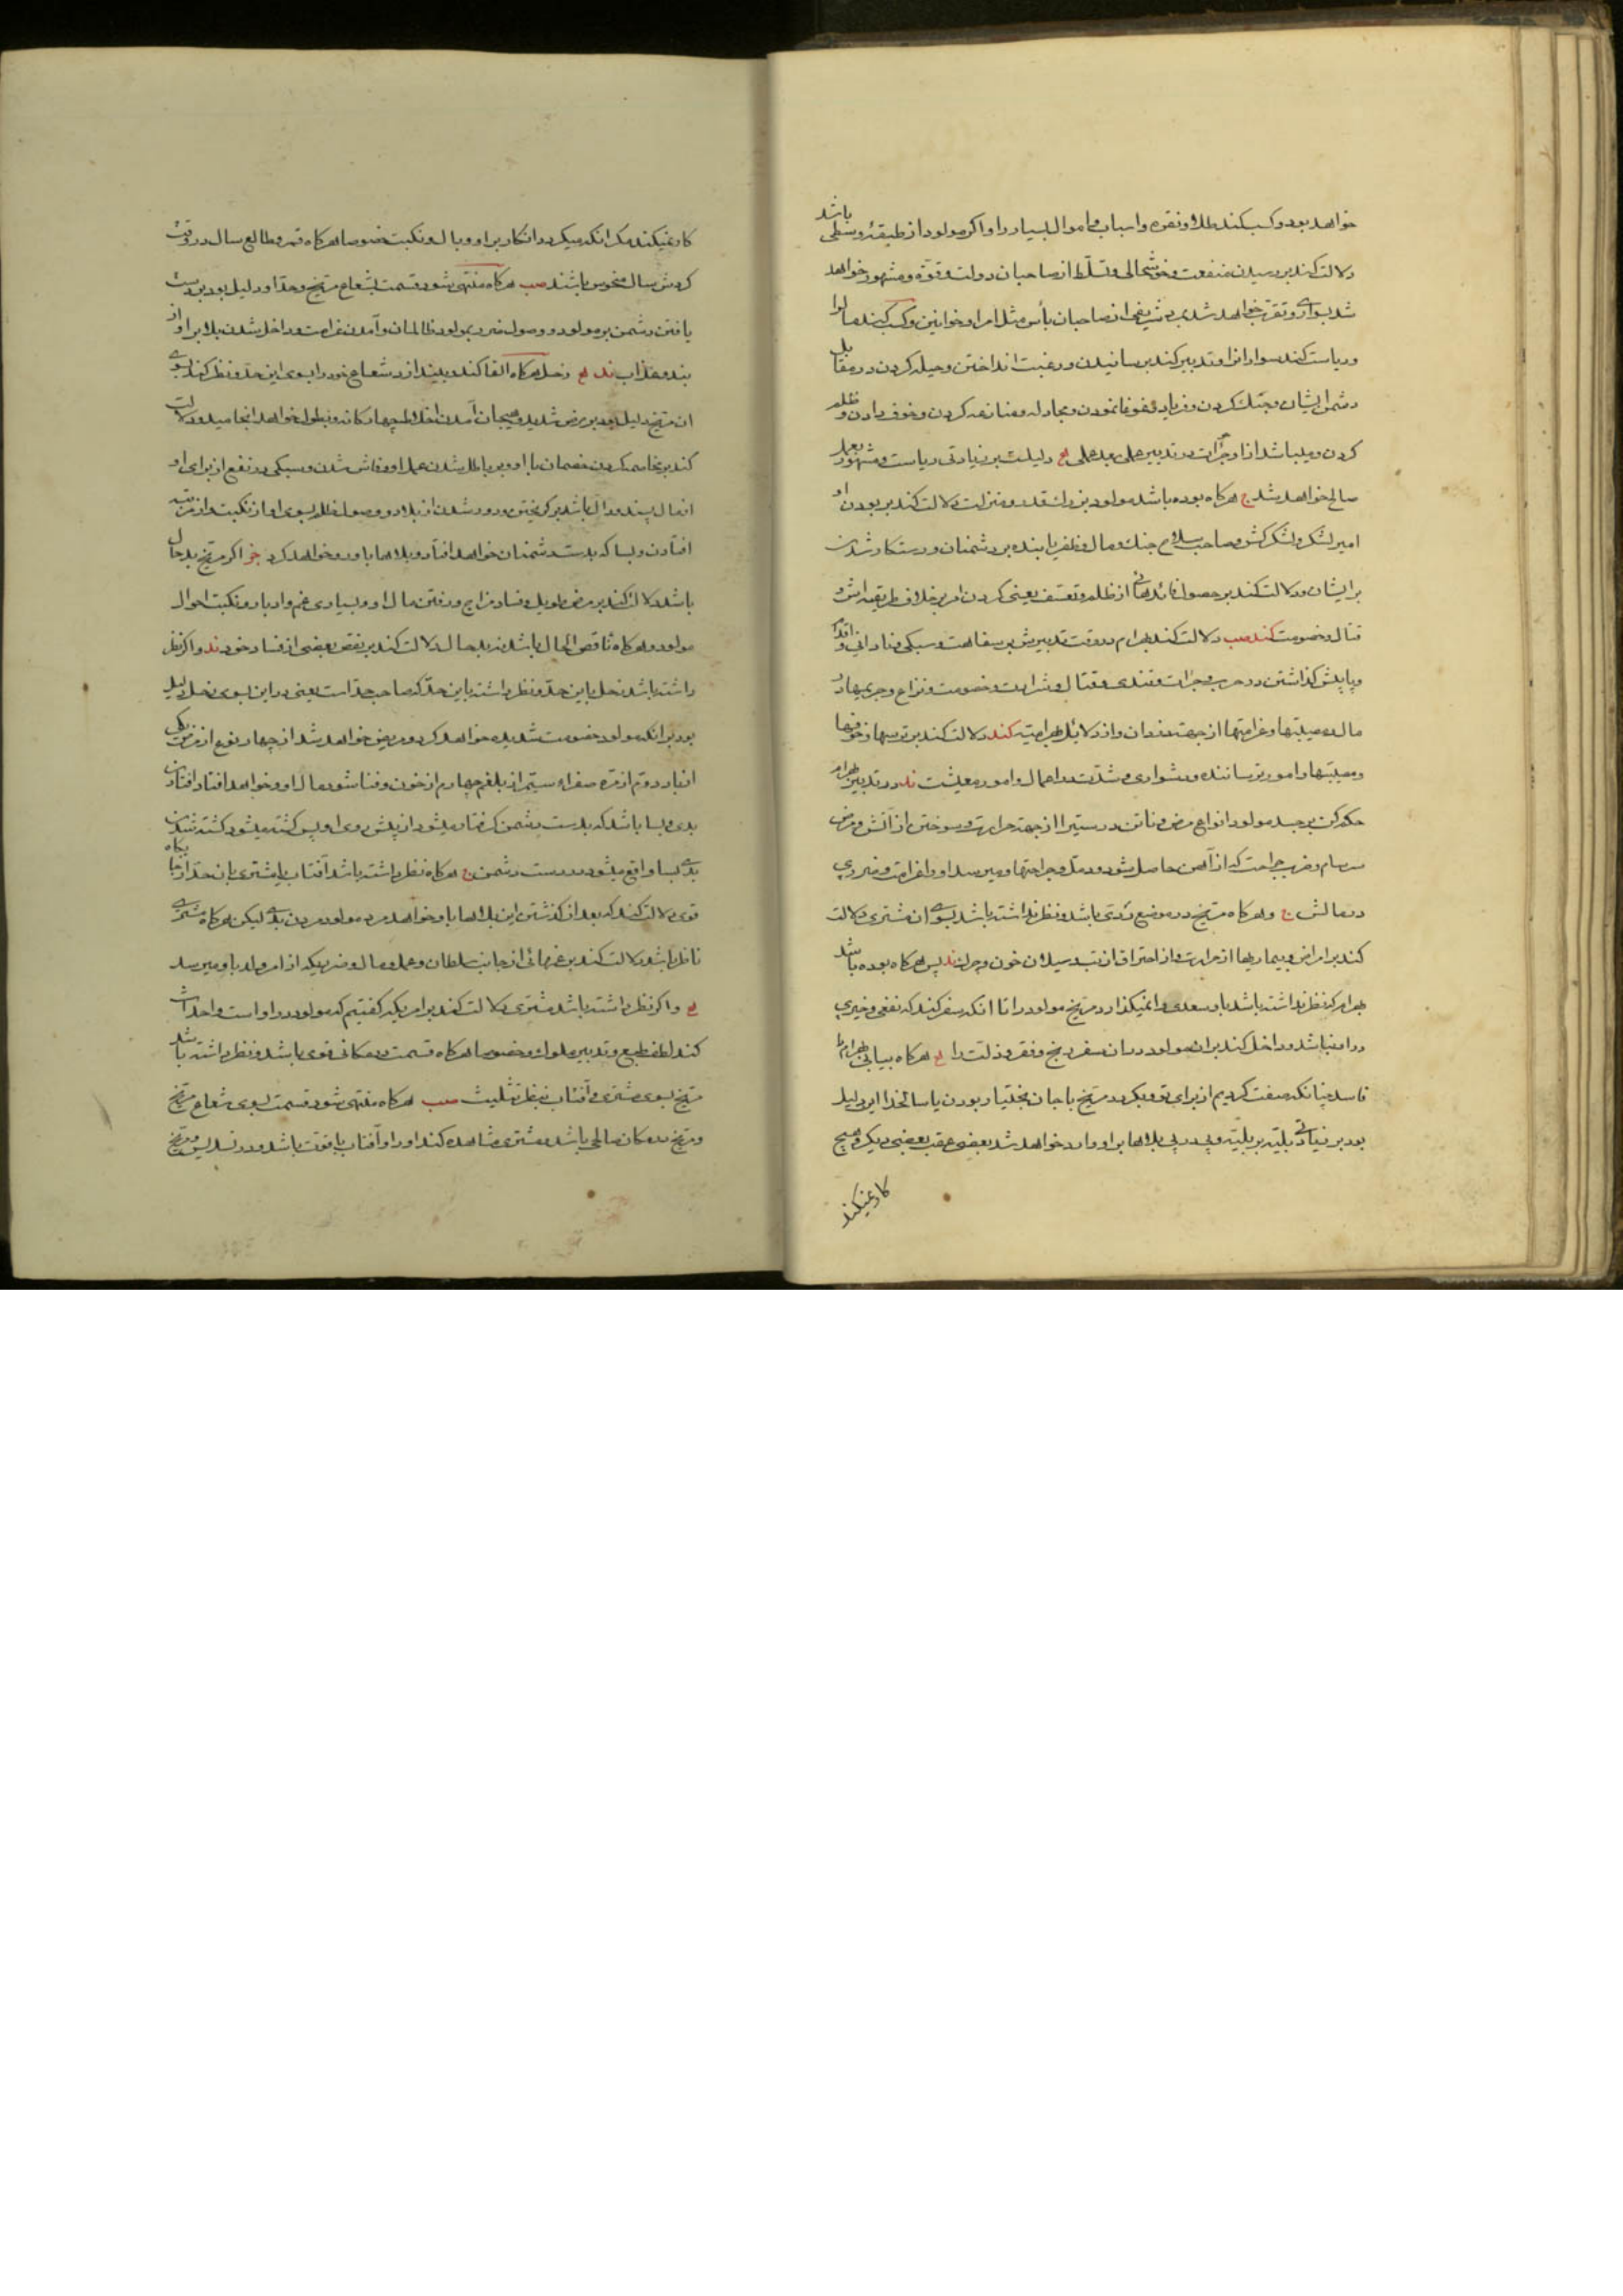 خواهد بود و کسب کند طلا و نقره و اسباب و اموال بسیار را و اگر مولود از طبقهٔ وسطی باشد
دلالت کند بر رسیدن منفعت و خوشحالی و تسلّط از صاحبان دولت و قوّة و مشهور خواهد
شد بسوای و تقرب خواهد شد از صاحبان بأس مثل امرا و خوانین و کسب کند مالرا
و ریاست کند سواران را و تدبیر کند برسانیدن و رغبت انداختن و حیله کردن در مقابل
دشمن ایشان و جنگ کردن و فریاد و غوغا نمودن و مجادله و منازعه کردن و خوف دادن و ظلم
کردن و میباشد از او جرأت در تدبیر عملی بعد عملی دلیلست بر زیادتی ریاست و مشهور بعمل
صالح خواهد شد هرگاه بوده باشد مولود بزرگ قدر و منزلت دلالت کند بر بودن او
امیر لشکر و لشکر کش و صاحب سلاح جنك و مال و ظفر یابنده بر دشمنان و رستکار شدن
بر ایشان و دلالت کند بر حصول فائدها از ظلم و تعسّف یعنی کردن امر بر خلاف طریقه اش و
قتال و خصومت کند دلالت کند بهرام در وقت تدبیرش بر سفاهت و سبکی و نادانی و اقدام
و پا پیش کذاشتن در حرب و جرأت و تندی و قتال و شرارت و خصومت و نزاع و جریمها در
مال و مصیبتها و غرامتها از جهت دزدان و از دلائل بهرامیّه کند دلالت کند بر ترسها و خوفها
و مصیبتها و امور ترساننده و دشواری و شدّت در اعمال و امور معیشت در تدبیر بهرام
حکم کن بر جسد مولود انواع مرض و ناتندرستیرا از جهة حرارت و سوختن از آتش و مرض
سرسام و ضرب جراحت که از آهن حاصل شود و دمل و جراحتها و میرسد او را غرامت و ضرر در
در مالش و هرکاه مریخ در موضع ردّی باشد و نظر نداشته باشد بسوی ان مشتری دلالت
کند بر امراض و بیماریها از حرارت و از احتراق از تب و سیلان خون و جرب پس هرکاه بوده باشد
بهرام که نظر نداشته باشد باو سعدی وا نمیکذارد مریخ مولود را تا آنکه سفر کند که نفعی و خیری
در او نباشد و داخل کند بر ان مولود در ان سفر رنج و فقر و ذلت را هرکاه بیابی بهرام را
فاسد چنانکه صفت کردیم از برای تو و بکردد مریخ با جان بختیار بودن یا سالخدا این دلیل
بود بر زیادتی بلیّه بر بلیّه و پی در پی بلاها بر او وارد خواهد شد بعضی عقب بعضی دیکر و هیچ
کار نمیکند
کار نمیکند مکر انکه میکردد انکار بر او وبال و نکبت خصوصا هرکاه قمر و طالع سال در وقت
کردش سال منحوس باشند هرکاه منتهی شود قسمت بشعاع مریخ و حدّ او دلیل بود بر دست
یافتن دشمن بر مولود و وصول ضرر بمولود از ظالمان و آمدن غرامت و داخل شدن بلا بر او از
بند و عذاب زحل هرکاه القا کند و بیندازد شعاع خود را بسوی این حدّ و نظر کند بسوی
ان مریخ دلیل بود بر مرض شدید و هیجان آمدن اخلاط چهارکانه و بطول خواهد انجامید و دلالت
کند بر مخاصمه کردن خصمان با او و بر باطل شدن عمل او و فاش شدن و سبکی و نفع از برای او
افتادن و بسا که بدست دشمنان خواهد افتاد و بلاها باو رو خواهد کرد اگر مریخ بدحال
باشد دلالت کند بر مرض طویل و فساد مزاج و رفتن مال او و بسیاری غم و ادبار و نکبت احوال
مولود و هرکاه ناقص الحال باشد نه بدحال دلالت کند بر نقص بعضی از فساد خود و اکر نظر
داشته باشد زحل باین حدّ و نظر داشته باین حدّ که صاحب حدّ است یعنی در این بسوی زحل دلیل
بود بر انکه مولود خصومت شدید خواهد کرد و مریض خواهد شد از چهار نوع از مرض یکی
دوّم از مرّه صفراء سیّم از بلغم چهارم از خون و فنا شود مال او و خواهد افتاد افتادن
بدی و بسا باشد که بدست دشمن کرفتار میشود از پیش روی او پس کشته میشود کشته شدن
بدی بسا واقع میشود در دست دشمن هرکاه نظر داشته باشد آفتاب یا مشتری بان حدّ از جایکاه
قوی دلالت کند که بعد از کذشتن این بلاها باو خواهد مرد مولود مردن بدی لیکن هرکاه مشتری
ناظر باشد دلالت کند بر غمهائی از جانب سلطان و عمل و مال و ضرریکه از امر ولد باو میرسد
و اکر نظر داشته باشد مشتری دلالت کند بر امریکه کفتیم که مولود در او است و احداث
کند لطف طبع و تدبیر ملوك و خصوصا هرکاه قسمت در مکانی قوی باشد و نظر داشته باشد
مریخ بسوی مشتری و آفتاب بنظر تثلیث هرکاه منتهی شود قسمت بسوی شعاع مریخ
و مریخ در مکان صالحی باشد و مشتری مشاهده کند او را و آفتاب با قوّت باشد و در تسدیس مریخ